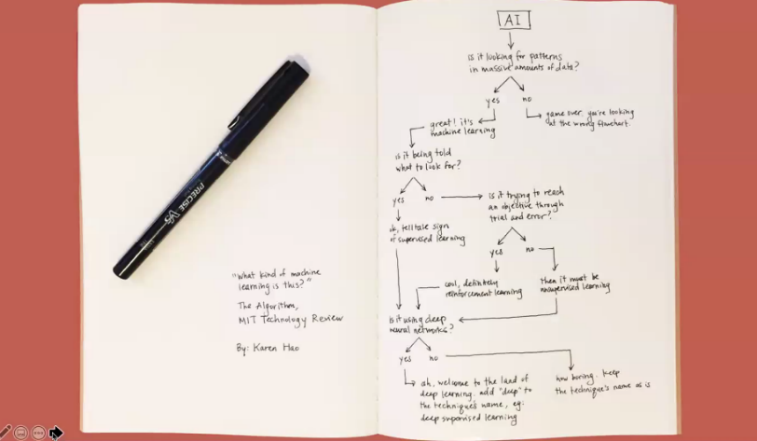 PRECISE V5
"What kind of machine
learning is this?"
The Algorithm,
MIT Technology Review
By: Karen Hao
AI
Is it looking for patterns
in massive amounts of data?
yes
no
great! it's
machine learning
game over. you're looking
at the wrong flowchart.
is it being told
what to look for?
yes
no
is it trying to reach
an objective through
trial and error?
oh, telltale signs
of supervised learning
yes
no
cool, definitely
reinforcement learning
then it must be
unsupervised learning
is it using deep
neural networks?
yes
no
ah, welcome to the land of
deep learning. add "deep" to
the technique's name, eg:
deep supervised learning
how boring. keep
the technique's name as is